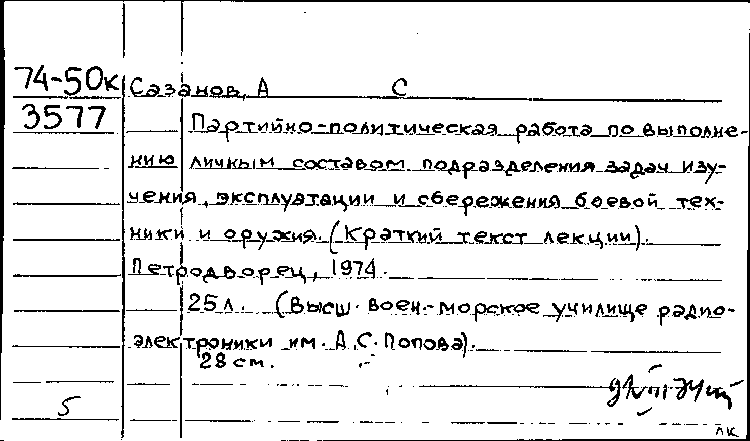 74-50к Сазанов, А С
3577 Партийно-политическая работа по выполне-
нию личным составом подразделения задач изу-
чения, эксплуатации и сбережения боевой тех-
ники и оружия. (Краткий текст лекции).
Петродворец, 1974.
25л. (Высш. воен.-морское училище радио-
электроники им. А.С. Попова).
28 см.
5
лк